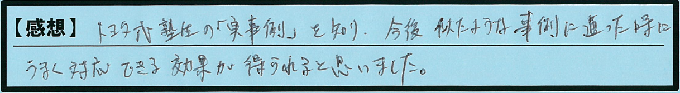 【感想】トヨタ式整住の「実事例」を知り、今後似たような事例に遭った時に
うまく対応できる効果が得られると思いました。